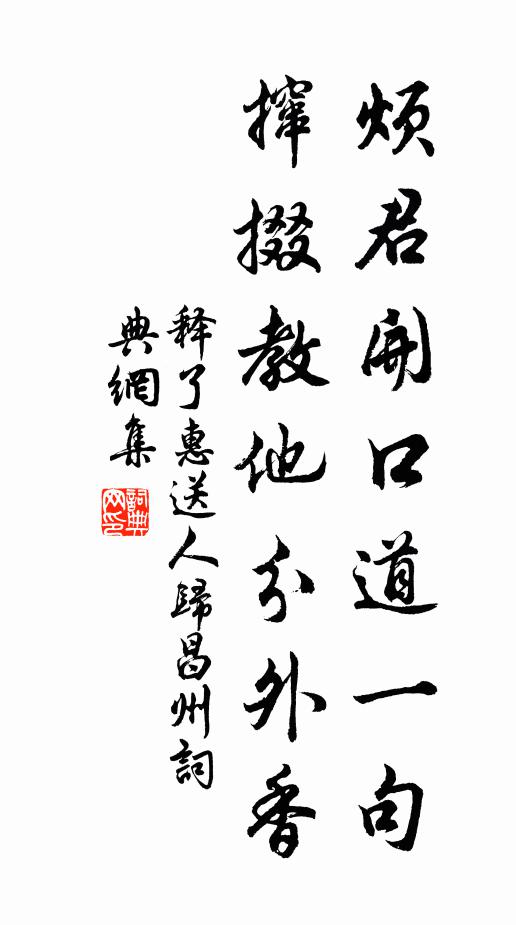 煩君開口道一句
撺掇教他分外香
释了惠送人歸昌州詞
典網集
詞典
网印